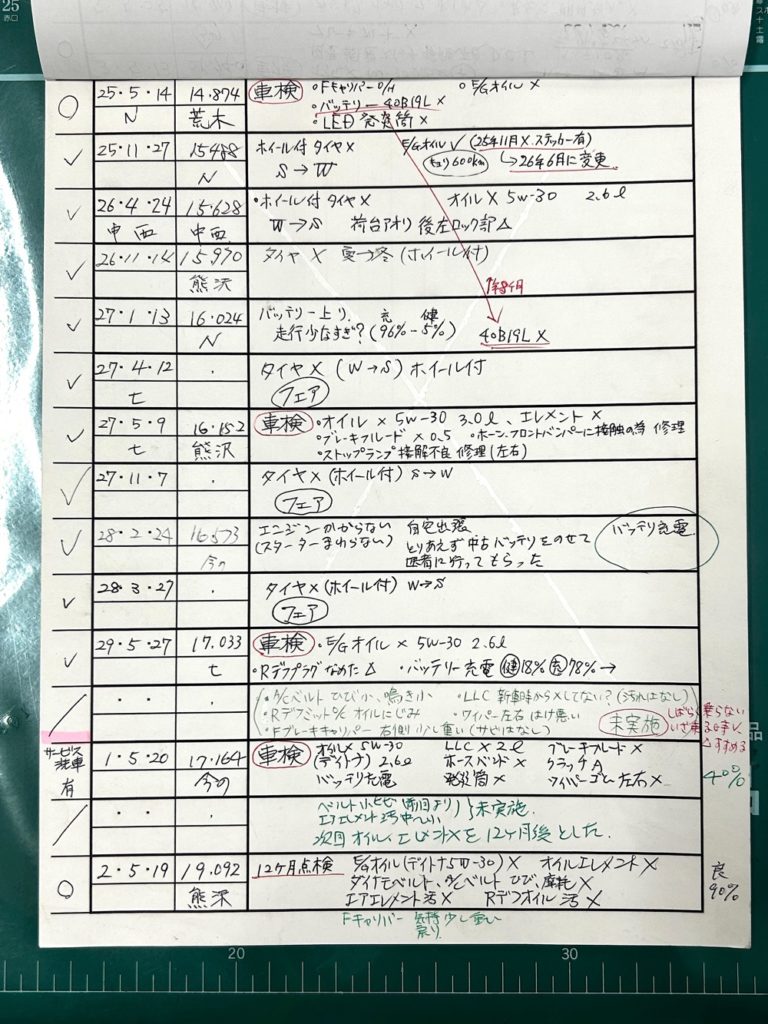 25・5・14 14.874 車検 ・Fキャリパー O/H ・E/Gオイル ×
N 荒木 ・バッテリー 40B19L ×
・LED 発炎筒 ×
25・11・27 15488 ホイール付 タイヤ× E/Gオイル✓ (25年11月×.ステッカー有)
N S→W 600km →26年6月に変更
26・4・24 15.628 ・ホイール付 タイヤ× オイル× 5w-30 2.6ℓ
中西 中西 W→S 荷台アオリ 後左ロック部△
26・11・14 15.970 タイヤ× 夏→冬 (ホイール付)
熊沢
27・1・13 16.024 バッテリー上り、 充 健
N 走行少なすぎ? (96%-5%) 40B19L ×
27・4・12 ・ タイヤ× (W→S) ホイール付
七 フェア
27・5・9 16.152 車検 ・オイル × 5w-30 3.0ℓ、エレメント ×
七 熊沢 ・ブレーキフルード ×0.5 ・ホーン、フロントバンパーに接触の為 修理
・ストップランプ 接触不良 修理(左右)
27・11・7 ・ タイヤ× (ホイール付) S→W
フェア
28・2・24 16.573 エンジンかからない 自宅出張 バッテリ充電
今の (スターターまわらない) とりあえず中古バッテリをのせて
医者に行ってもらった
28・3・27 ・ タイヤ× (ホイール付) W→S
フェア
29・5・27 17.033 車検 ・E/Gオイル × 5W-30 2.6ℓ
七 ・Rデフプラグなめた△ ・バッテリー充電 健18% 充78% →
・A/Cベルト ひび小、鳴き小 ・LLC 新車時から×してない? (汚れはなし)
・Rデフ オイルにじみ ・ワイパー左右 はけ悪い
・Fブレーキキャリパー 右側少し重い (サビはなし) 未実施
しばらく乗らない
サービス洗車 有
1・5・20 17.164 車検 オイル× 5W-30 LLC × 2ℓ ブレーキフルード×
今の (デイトナ) 2.6ℓ ホースバンド× クラッチA
バッテリ充電 発炎筒× ワイパーゴム左右×
40%
・ ・ ・ ベルト小ヒビ (前回より) 未実施.
エアエレメント 汚中〜小
次回 オイル、エレメント×を12ヶ月後とした.
2・5・19 19.092 12ヶ月点検 E/Gオイル(デイトナ5W-30)× オイルエレメント×
熊沢 ダイナモベルト、A/Cベルト ひび、摩耗×
エアエレメント 活× Rデフオイル 活×
良
90%
Fキャリパー 気持少し重い
20 30